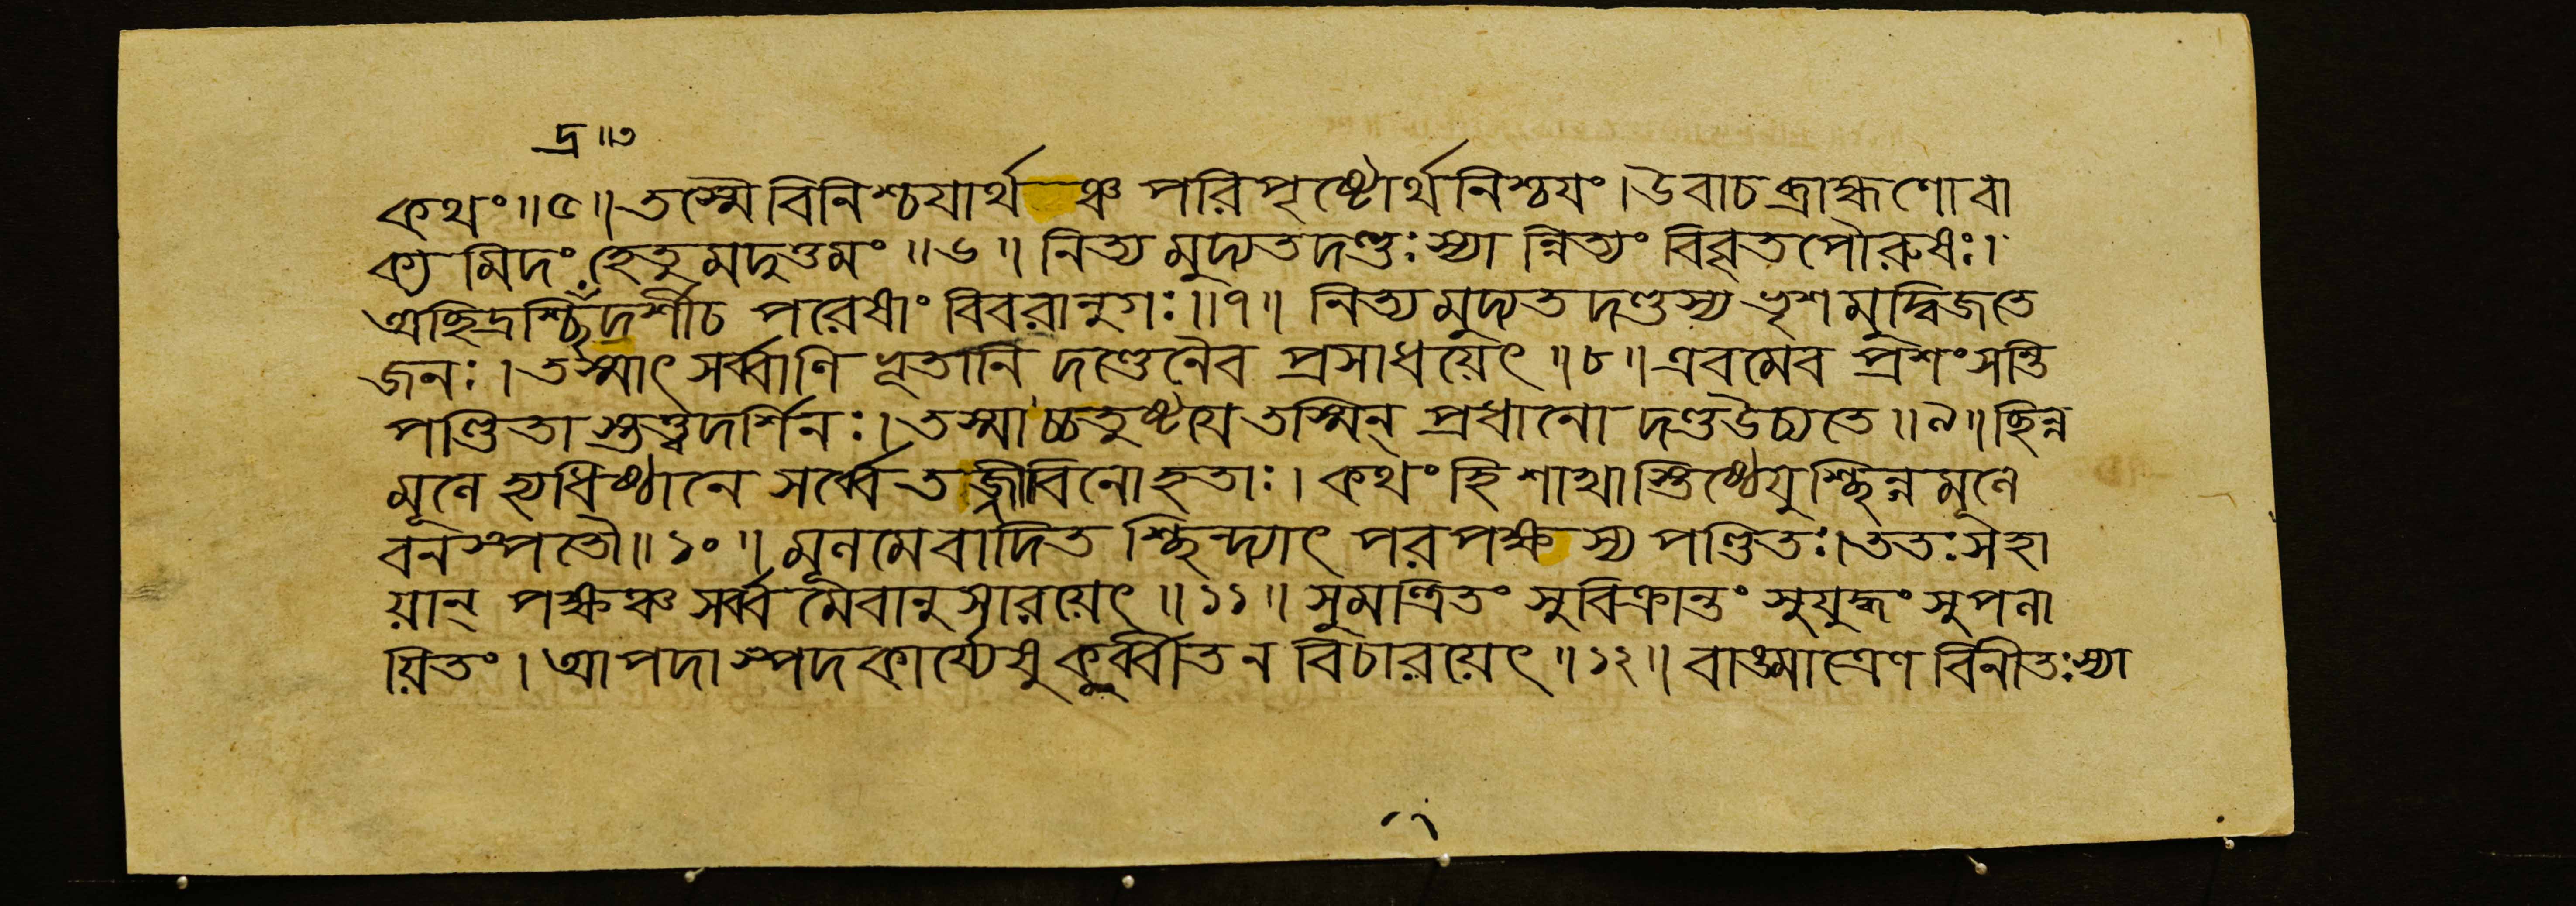 দ্র॥৩
কথং॥৫॥তস্মৈবিনিশ্চযার্থ ঞ্চ পরিপৃষ্টোর্থনিশ্চযং।উবাচব্রাহ্মণোবা
ক্য মিদং হেতুমদুত্তমং ॥৬॥ নিত্য মুদ্যতদণ্ডঃস্যা ন্নিত্যং বিবৃতপৌরুষঃ।
অছিদ্রশ্ছিদর্শীচ পরেষাং বিবরানুগঃ॥৭॥ নিত্যমুদ্যতদণ্ডস্য ভৃশমুদ্বিজতে
জনঃ।তস্মাৎ সর্ব্বাণি ভূতানি দণ্ডেনৈব প্রসাধয়েৎ॥৮॥এবমেব প্রশংসন্তি
পণ্ডিতাস্তত্ত্বদর্শিনঃ।তস্মাচ্চতুষ্টযে তস্মিন্ প্রধানো দণ্ডউচ্যতে॥৯॥ছিন্ন
মূলে হ্যধিষ্ঠানে সর্ব্বেতজ্জীবিনোহতাঃ।কথং হি শাখাস্তিষ্ঠেযুশ্ছিন্নমূলে
বনস্পতৌ॥১০॥মূলমেবাদিত শ্ছিন্দ্যাৎ পরপক্ষ স্য পণ্ডিতঃ।ততঃসহা
য়ান্ পক্ষঞ্চ সর্ব্ব মেবানুসারয়েৎ॥১১॥ সুমন্ত্রিতং সুবিক্রান্তং সুযুদ্ধং সুপলা
য়িতং।আপদাস্পদকার্য্যেষুকুর্ব্বীতন বিচারয়েৎ॥১২॥বাঙ্মাত্রেণ বিনীতঃস্যা